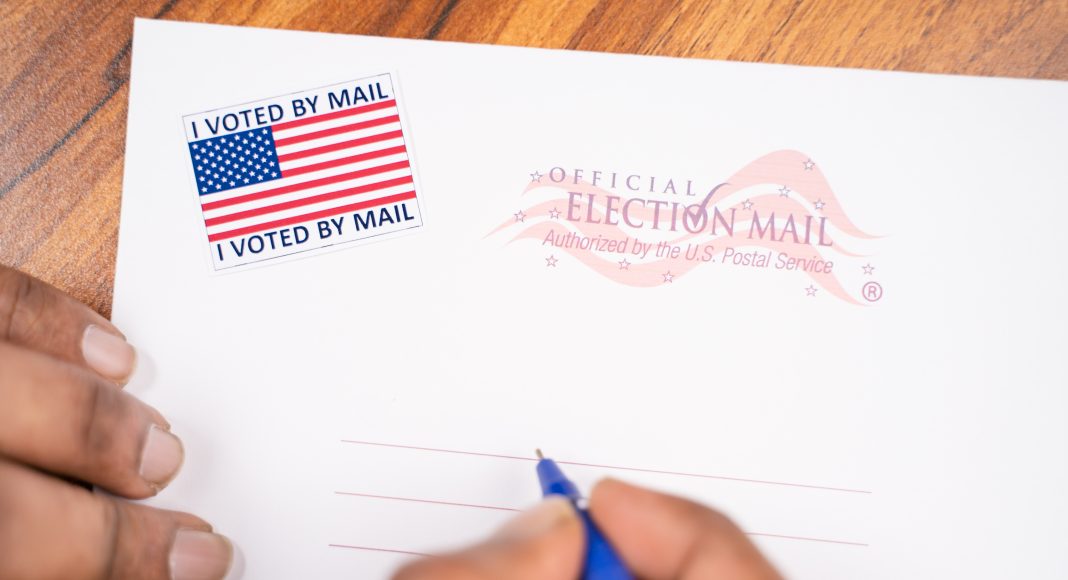 I VOTED BY MAIL
I VOTED BY MAIL
OFFICIAL
ELECTION MAIL
Authorized by the U.S. Postal Service
®